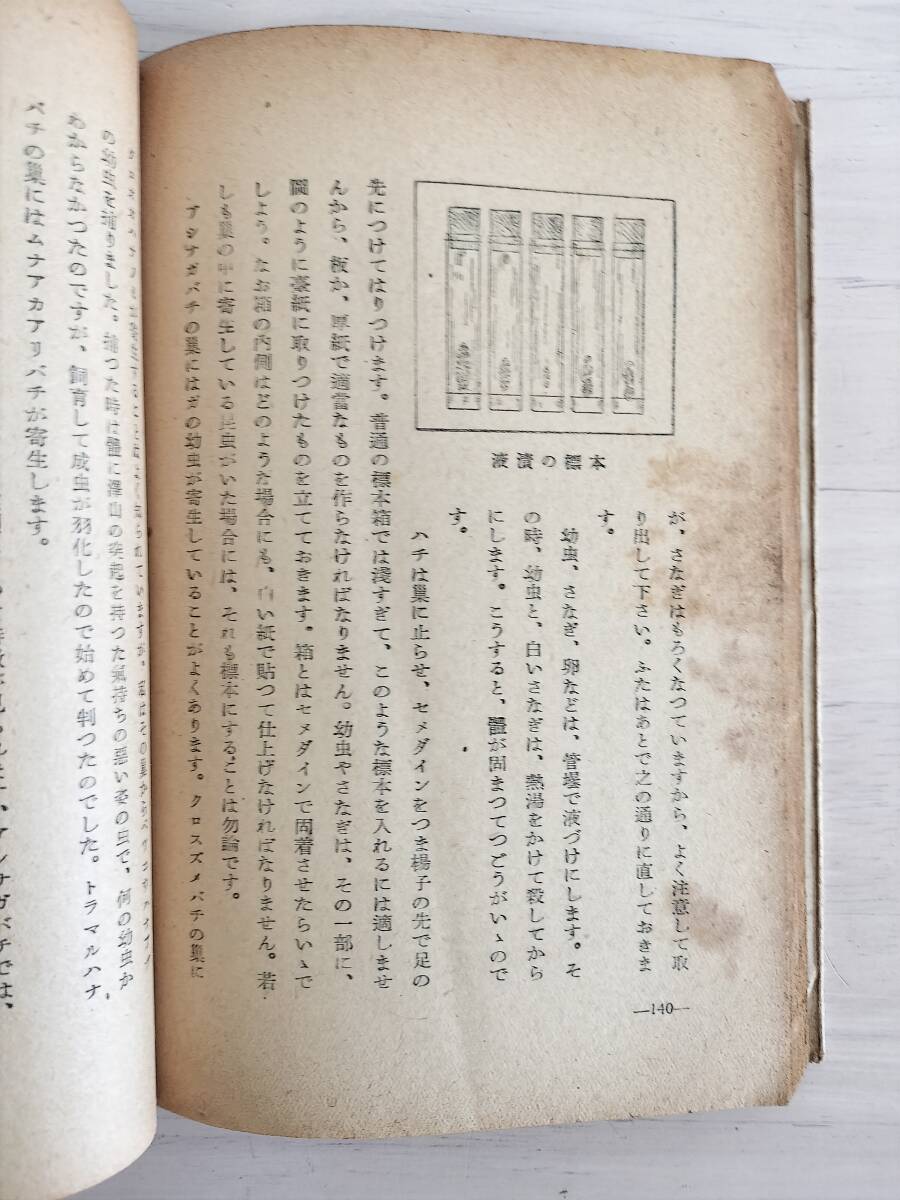 が、さなぎはもろくなつていますから、よく注意して取
り出して下さい。ふたはあとで之の通りに直しておきま
す。
幼虫、さなぎ、卵などは、管壜で液づけにします。そ
の時、幼虫と、白いさなぎは、熱湯をかけて殺してから
にします。こうすると、體が固まつてつごうがいゝので
す。
ハチは巣に止らせ、セメダインをつま楊子の先で足の
先につけてはりつけます。普通の標本箱では淺すぎて、このような標本を入れるには適しませ
んから、板か、厚紙で適當なものを作らなければなりません。幼虫やさなぎは、その一部に、
圖のように臺紙に取りつけたものを立てておきます。箱とはセメダインで固着させたらいゝで
しよう。なお箱の内側はどのような場合にも、白い紙で貼つて仕上げなければなりません。若
しも巣の中に寄生している昆虫がいた場合には、それも標本にすることは勿論です。
アシナガバチの巣にはガの幼虫が寄生していることがよくあります。クロスズメバチの巣に
液漬の標本
—140—
の幼虫を捕りました。捕つた時は體に澤山の突起を持つた氣持の悪い姿の虫で、何の幼虫か
わからなかつたのですが、飼育して成虫が羽化したので始めて判つたのでした。トラマルハナ
バチの巣にはムナアカアリバチが寄生します。